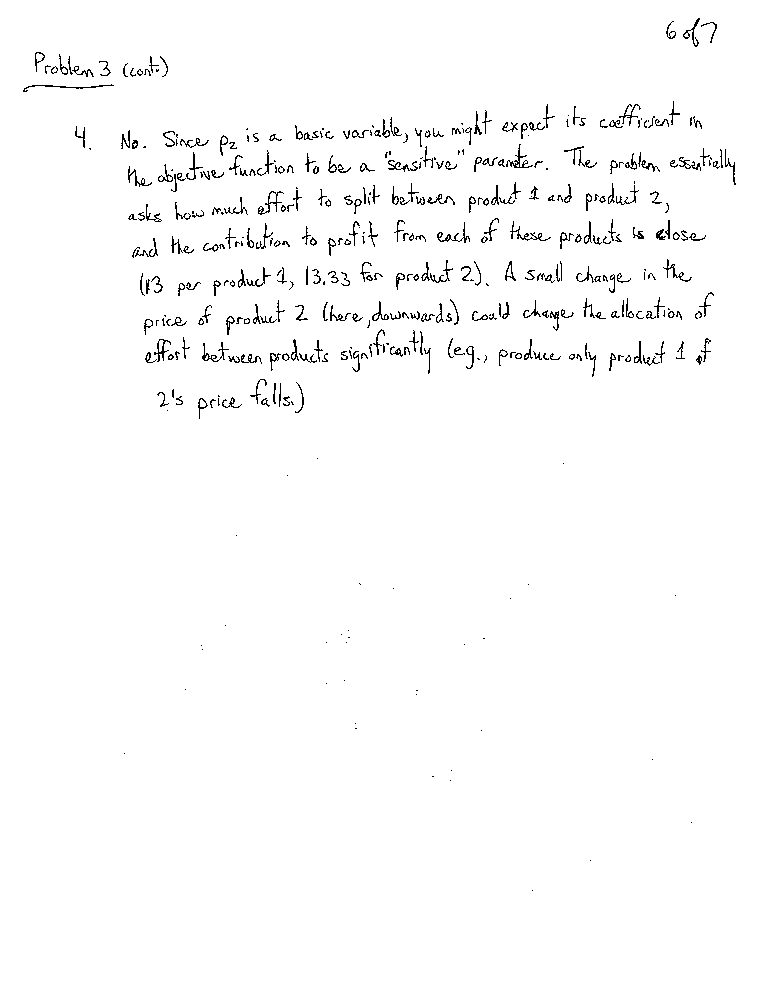 6 of 7
Problem 3 (cont.)
4. No. Since p2 is a basic variable, you might expect its coefficient in
the objective function to be a "sensitive" parameter. The problem essentially
asks how much effort to split between product 1 and product 2,
and the contribution to profit from each of these products is close
(13 per product 1, 13.33 for product 2). A small change in the
price of product 2 (here, downwards) could change the allocation of
effort between products significantly (e.g., produce only product 1 if
2's price falls.)